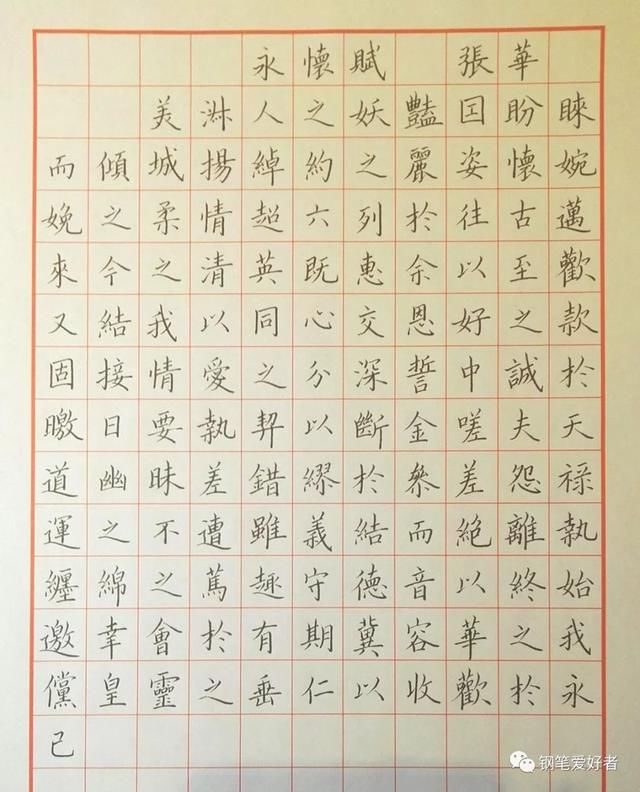 永懷賦 張華
美淑人之妖豔因盼睞
而傾城揚綽約之麗姿懷婉
娩之柔情超六列於往古邁
來今之清英既惠余以至歡
又結我以同心交恩好之款
固接情愛之分深誓中誠於
曒日要執契以斷金嗟夫天
道幽昧差錯繆於參差怨祿
運之不遭雖義結而絕離執
纏綿之篤趣守德音以終始
邀幸會於有期冀容華之我
儻皇靈之垂仁以收歡於永
己
钢笔爱好者